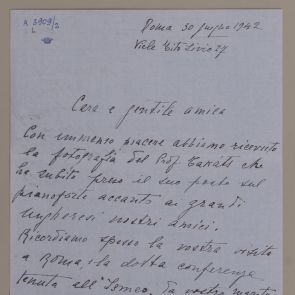 A 3909/2
L
Roma 30 giugno 1942
Viale Tito Livio 27
Cara e gentile amica
Con immenso piacere abbiamo ricevuto
la fotografia del Prof Takáts che
ha subito preso il suo posto sul
pianoforte accanto ai grandi
ungheresi nostri amici.
Ricordiamo spesso la vostra visita
a Roma, la dotta conferenza
tenuta all'Ismeo, da vostro marito